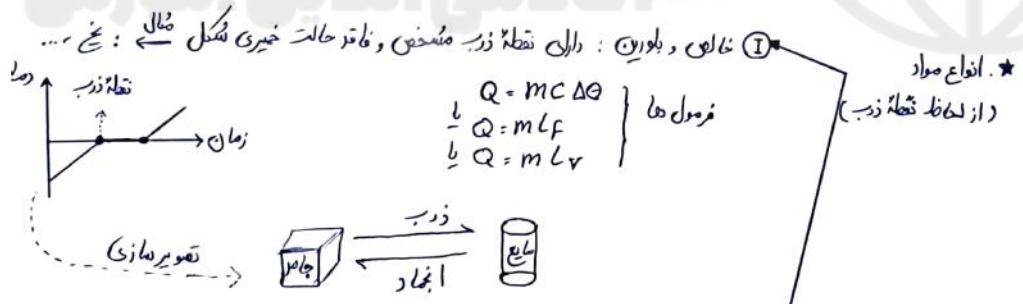 ★. انواع مواد
(از لحاظ نقطهٔ ذوب)
Ⓘ خالص و بلورین : دارای نقطهٔ ذوب مشخص و فاقد حالت خمیری شکل مثال : یخ ، ...
دما
نقطهٔ ذوب
زمان
فرمول ها
Q = mc Δθ
یا Q = mLF
یا Q = mLv
تصویرسازی
جامد
ذوب
انجماد
مایع